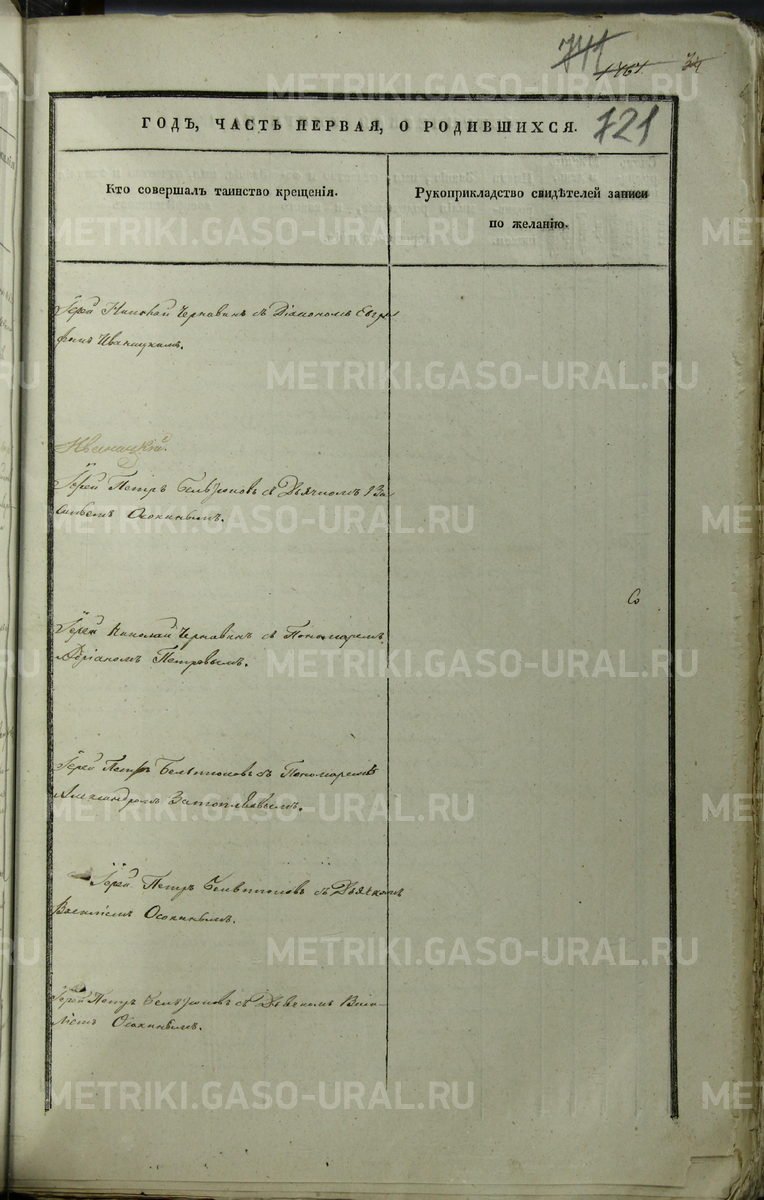 741
1461
721
ГОДЪ, ЧАСТЬ ПЕРВАЯ, О РОДИВШИХСЯ.
Кто совершалъ таинство крещенія.
Рукоприкладство свидѣтелей записи
по желанію.
Іерей Николай Чернавинъ съ Діакономъ Евгра
фомъ Иваницкимъ.
Иваницкій.
Іерей Петръ съ Дьячкомъ Ва
силіемъ Осокинымъ.
Іерей Николай Чернавинъ съ Пономаремъ
Адріаномъ Петровымъ.
Іерей Петръ съ Пономаремъ
Александромъ
Іерей Петръ съ Дьячкомъ
Василіемъ Осокинымъ.
Іерей Петръ съ Дьячкомъ Васи-
ліемъ Осокинымъ.
METRIKI.GASO-URAL.RU